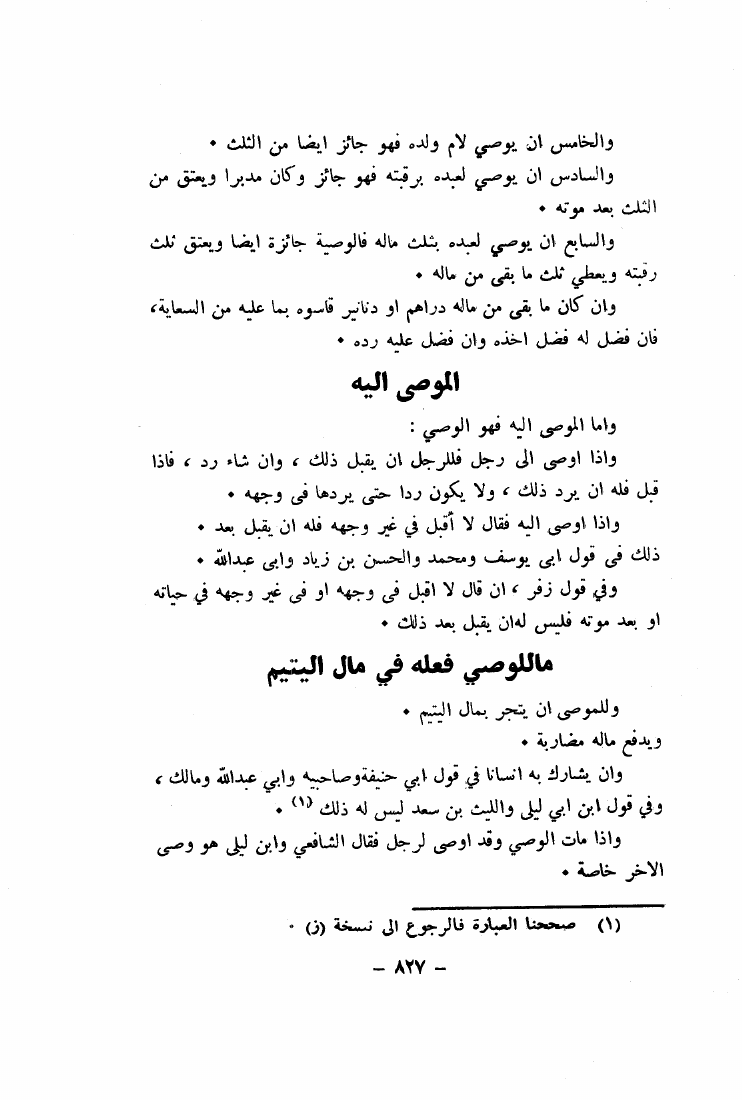 والخامس ان يوصي لام ولده فهو جائز ايضا من الثلث •
والسادس ان يوصي لعبده برقبته فهو جائز وكان مدبرا ويعتق من
الثلث بعد موته •
والسابع ان يوصي لعبده بثلث ماله فالوصية جائزة ايضا ويعتق ثلث
رقبته ويعطي ثلث ما بقى من ماله •
وان كان ما بقى من ماله دراهم او دنانير قاسوه بما عليه من السعاية،
فان فضل له فضل اخذه وان فضل عليه رده •
الموصى اليه
واما الموصى اليه فهو الوصي :
واذا اوصى الى رجل فللرجل ان يقبل ذلك ، وان شاء رد ، فاذا
قبل فله ان يرد ذلك ، ولا يكون ردا حتى يردها فى وجهه •
واذا اوصى اليه فقال لا أقبل في غير وجهه فله ان يقبل بعد •
ذلك فى قول ابى يوسف ومحمد والحسن بن زياد وابى عبدالله •
وفي قول زفر ، ان قال لا اقبل فى وجهه او فى غير وجهه في حياته
او بعد موته فليس له ان يقبل بعد ذلك •
ماللوصي فعله في مال اليتيم
وللموصى ان يتجر بمال اليتيم •
ويدفع ماله مضاربة •
وان يشارك به انسانا في قول ابي حنيفة وصاحبيه وابي عبدالله ومالك ،
وفي قول ابن ابي ليلى والليث بن سعد ليس له ذلك (١) •
واذا مات الوصي وقد اوصى لرجل فقال الشافعي وابن ليلى هو وصى
الاخر خاصة •
(١) صححنا العبارة فالرجوع الى نسخة (ز) •
– ٨٢٧ –